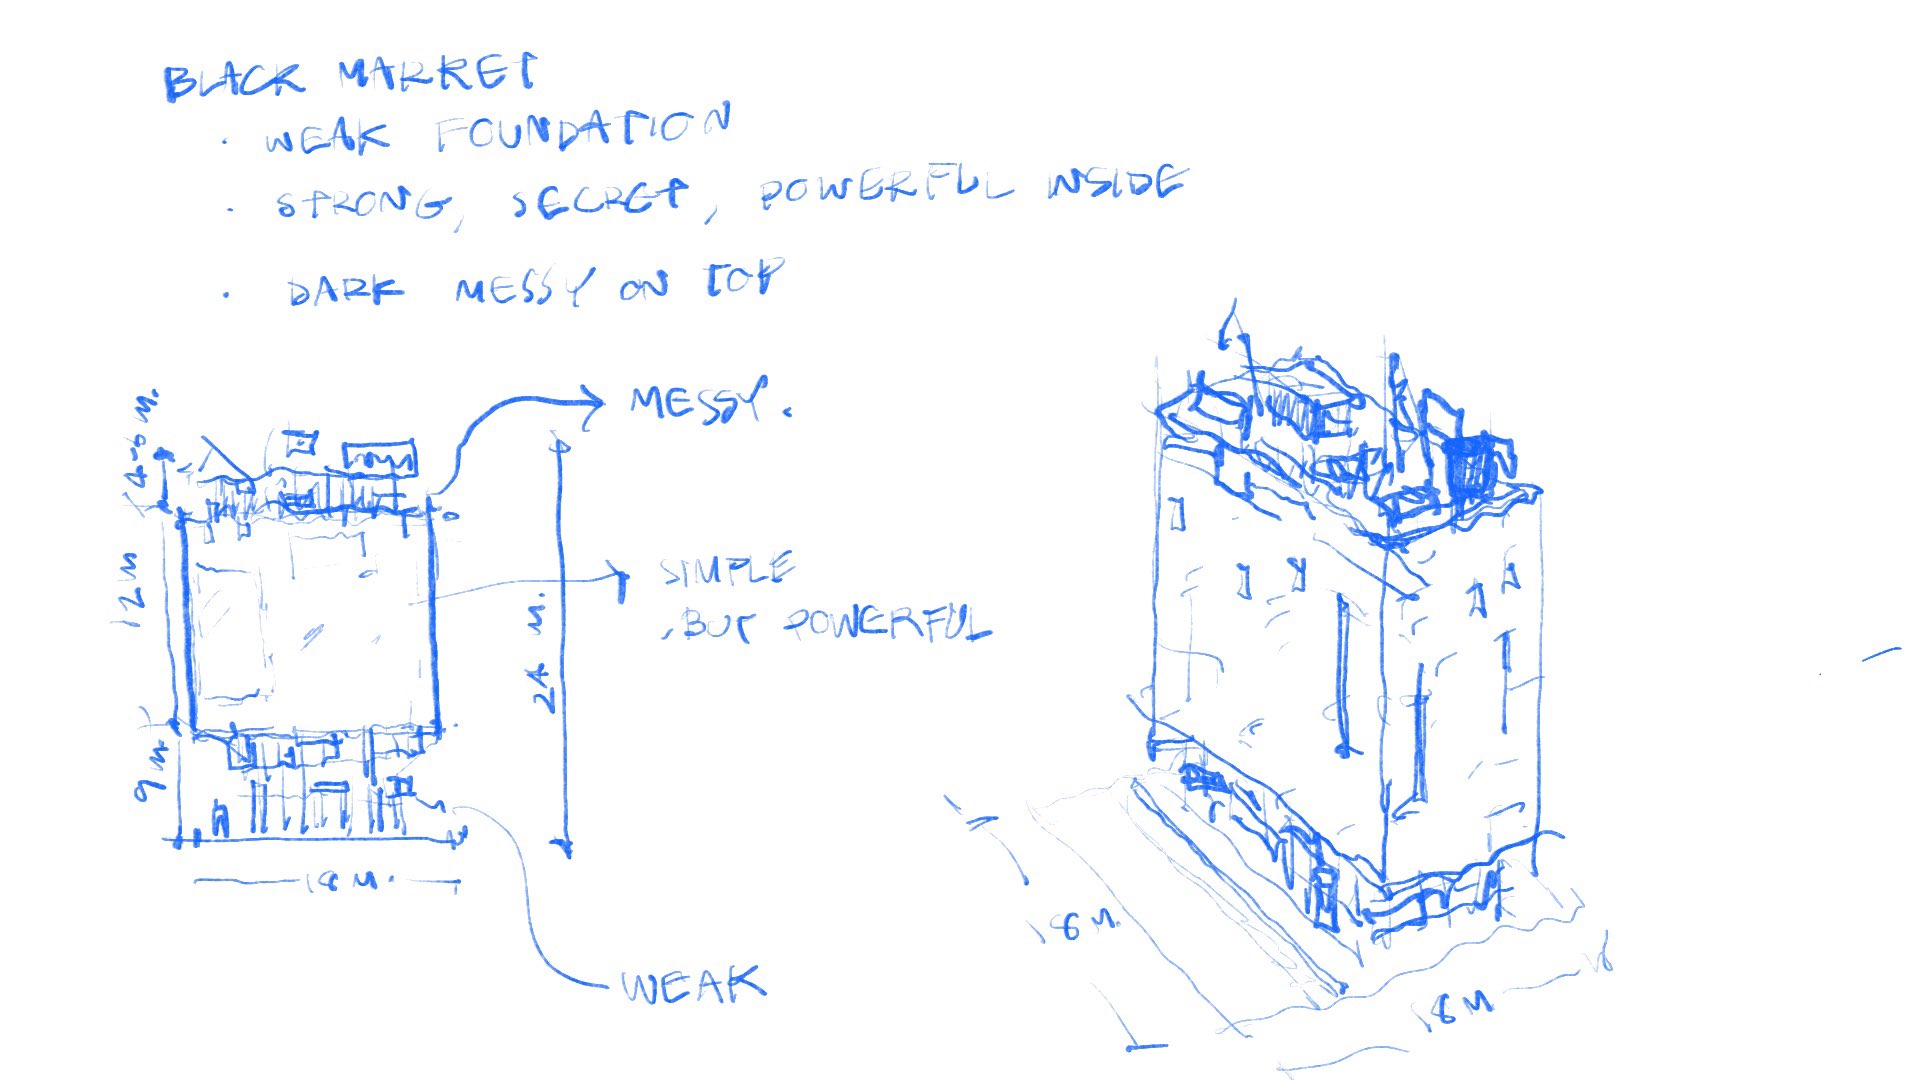 BLACK MARKET
· WEAK FOUNDATION
· STRONG, SECRET, POWERFUL INSIDE
· DARK MESSY ON TOP
MESSY.
4-6 M.
12 M
9 M
24 M.
SIMPLE
, BUT POWERFUL
18 M.
WEAK
18 M.
18 M